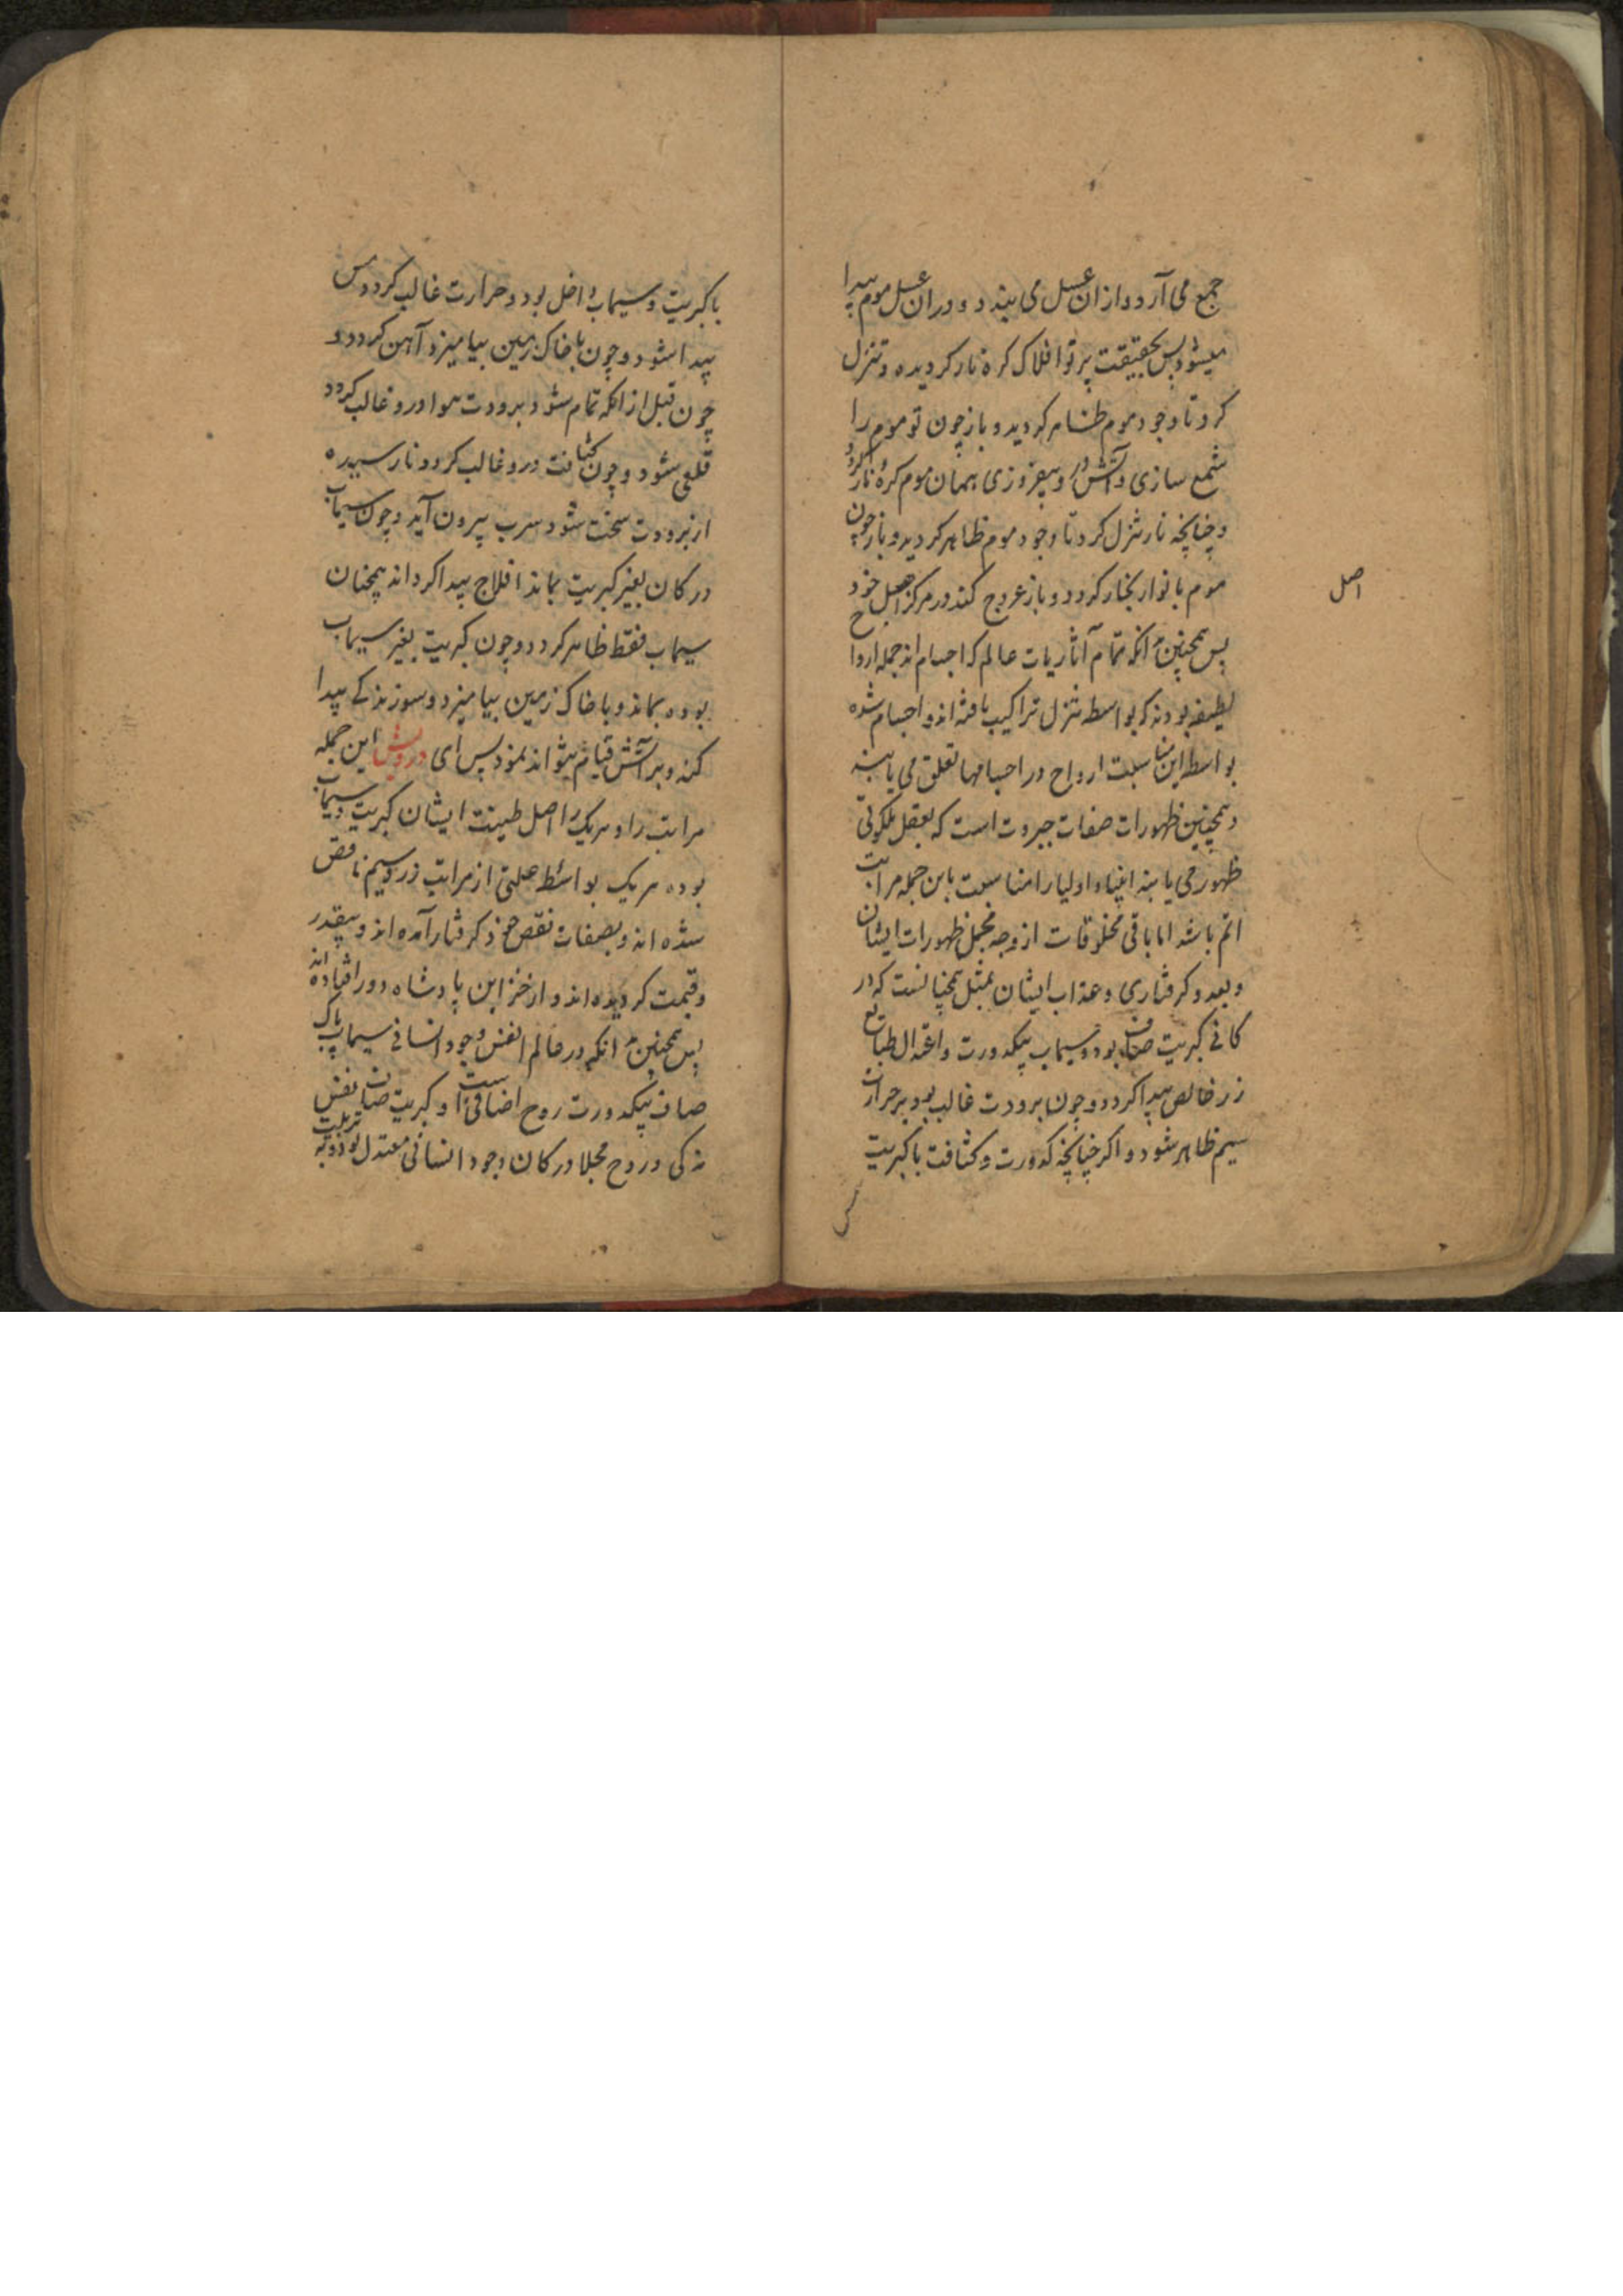 جمع می آرد و ازان عسل می بندد و دران عسل موم پیدا
میشود پس بحقیقت پرتو افلاک کره نار کردیده و تنزل
کرد تا وجود موم ظاهر کردید و باز چون تو موم را
شمع سازی و آتش درو بیفروزی همان موم کره نار کردد
و چنانچه نار تنزل کرد تا وجود موم ظاهر کردید و باز چون
موم با نوار بخار کردد و باز عروج کند در مرکز اصل خود
اصل
پس همچنین آنکه تمام آثاریات عالم که اجسام اند جمله ارواح
لطیفه بودند که بواسطه تنزل تراکیب یافته اند و اجسام شده
بواسطه این مناسبت ارواح در اجسامها تعلق می یابند
و همچنین ظهورات صفات جبروت است که بعقل ملکوتی
ظهور می یابند انبیاء و اولیا را مناسبت باین جمله مراتب
اتم باشد اما باقی مخلوقات از وجه مجمل ظهورات ایشان
و بعد و کرفتاری و عذاب ایشان بمثل همچنانست که در
کانی کبریت صاف بود و سیماب بیکدورت و اعتدال طبایع
زر خالص پیدا کردد و چون برودت غالب بود بر حرارت
سیم ظاهر شود و اکر چنانچه کدورت و کثافت با کبریت
با کبریت و سیماب داخل بود و حرارت غالب کردد مس
پیدا شود و چون با خاک زمین بیامیزد آهن کردد و
چون قبل از انکه تمام شود برودت هوا درو غالب کردد
قلعی شود و چون کثافت درو غالب کردد و نارسیده
از برودت سخت شود سرب بیرون آید و چون سیماب
در کان بغیر کبریت بماند افلاج پیدا کرداند همچنان
سیماب فقط ظاهر کردد و چون کبریت بغیر سیماب
بوده بماند و با خاک زمین بیامیزد و سوزندکی پیدا
کند و بر آتش قیام نتواند نمود پس ای درویش این جمله
مراتب را و هریک را اصل طینت ایشان کبریت و سیماب
بوده هریک بواسطه علتی از مراتب زر و سیم ناقص
شده اند و بصفات نقص خود کرفتار آمده اند و بیقدر
و قیمت کردیده اند و از خزاین پادشاه دور افتاده اند
پس همچنین آنکه در عالم انفس وجود انسانی سیماب پاک
صاف بیکدورت روح اضافی است و کبریت صاف نفس
زکی و روح مجلا در کان وجود انسانی معتدل بود و به تربیت